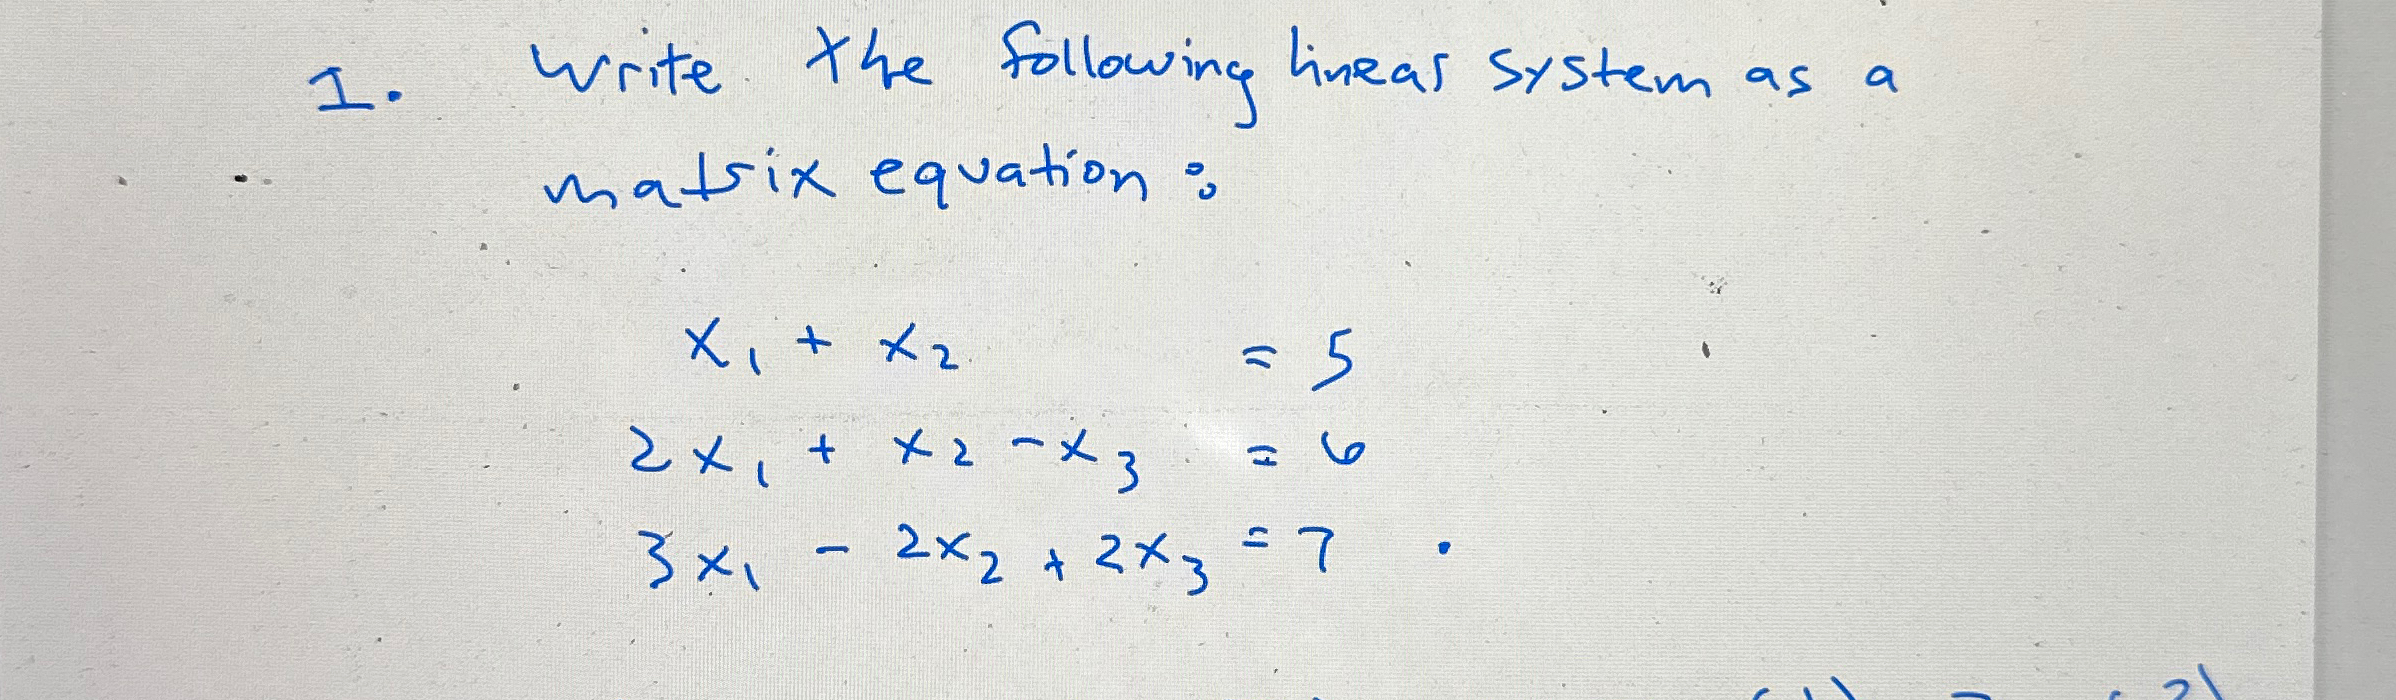 1. Write the following linear system as a
matrix equation:
x₁ + x₂ = 5
2x₁ + x₂ - x₃ = 6
3x₁ - 2x₂ + 2x₃ = 7 .